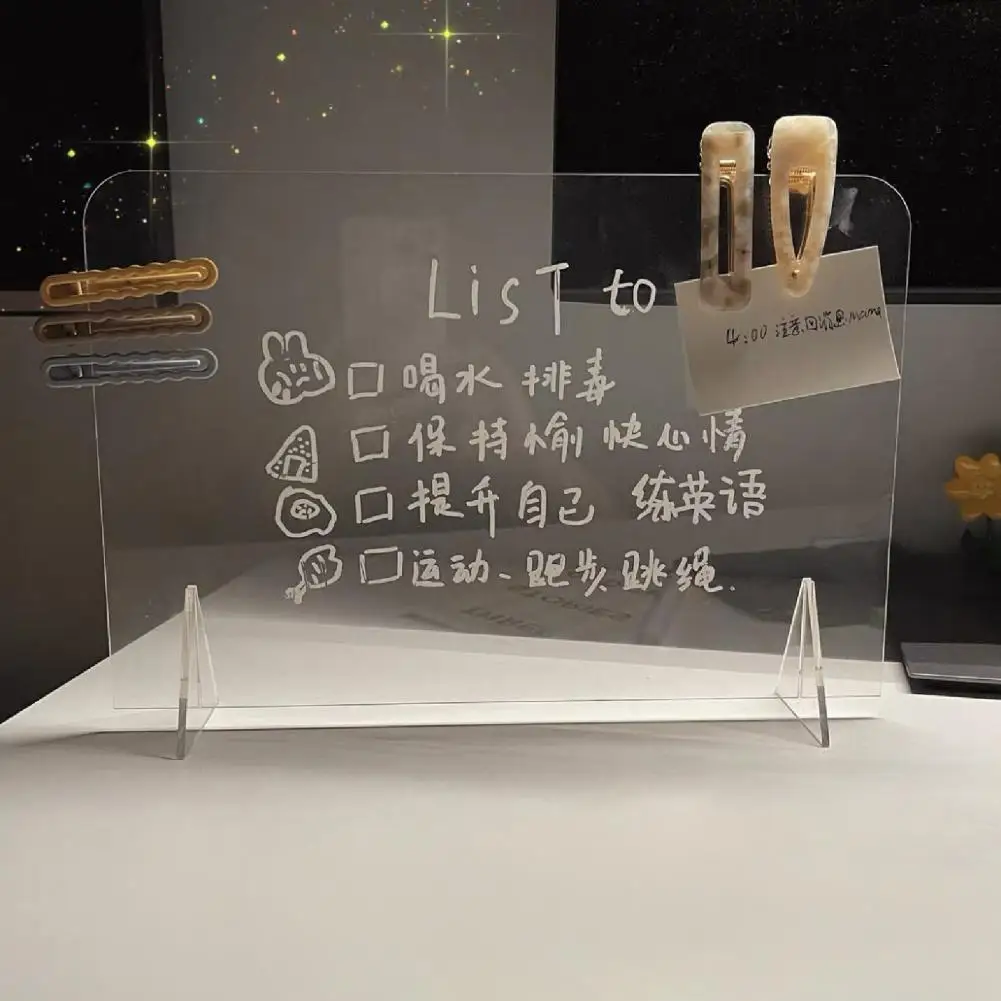 LisT to
4:00 注意回消息.mama
□ 喝水 排毒
□ 保持愉快心情
□ 提升自己 练英语
□ 运动、跑步跳绳.